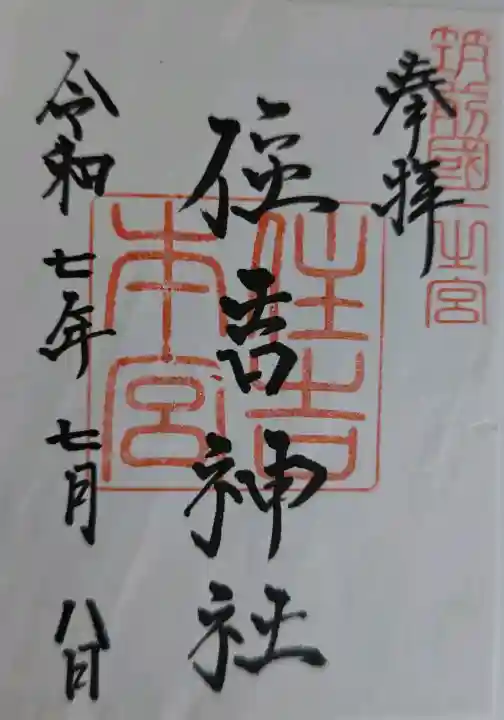 筑前國一之宮
奉拜
住吉神社
住吉本宮
令和七年七月八日